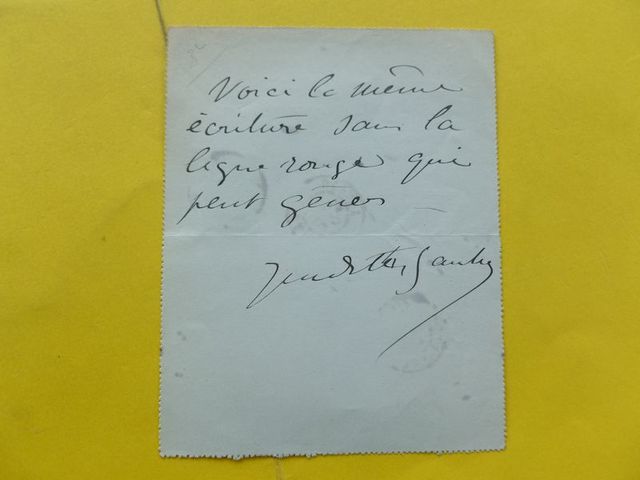 Voici la même
écriture sans la
ligne rouge qui
peut gêner —
Judith Gautier